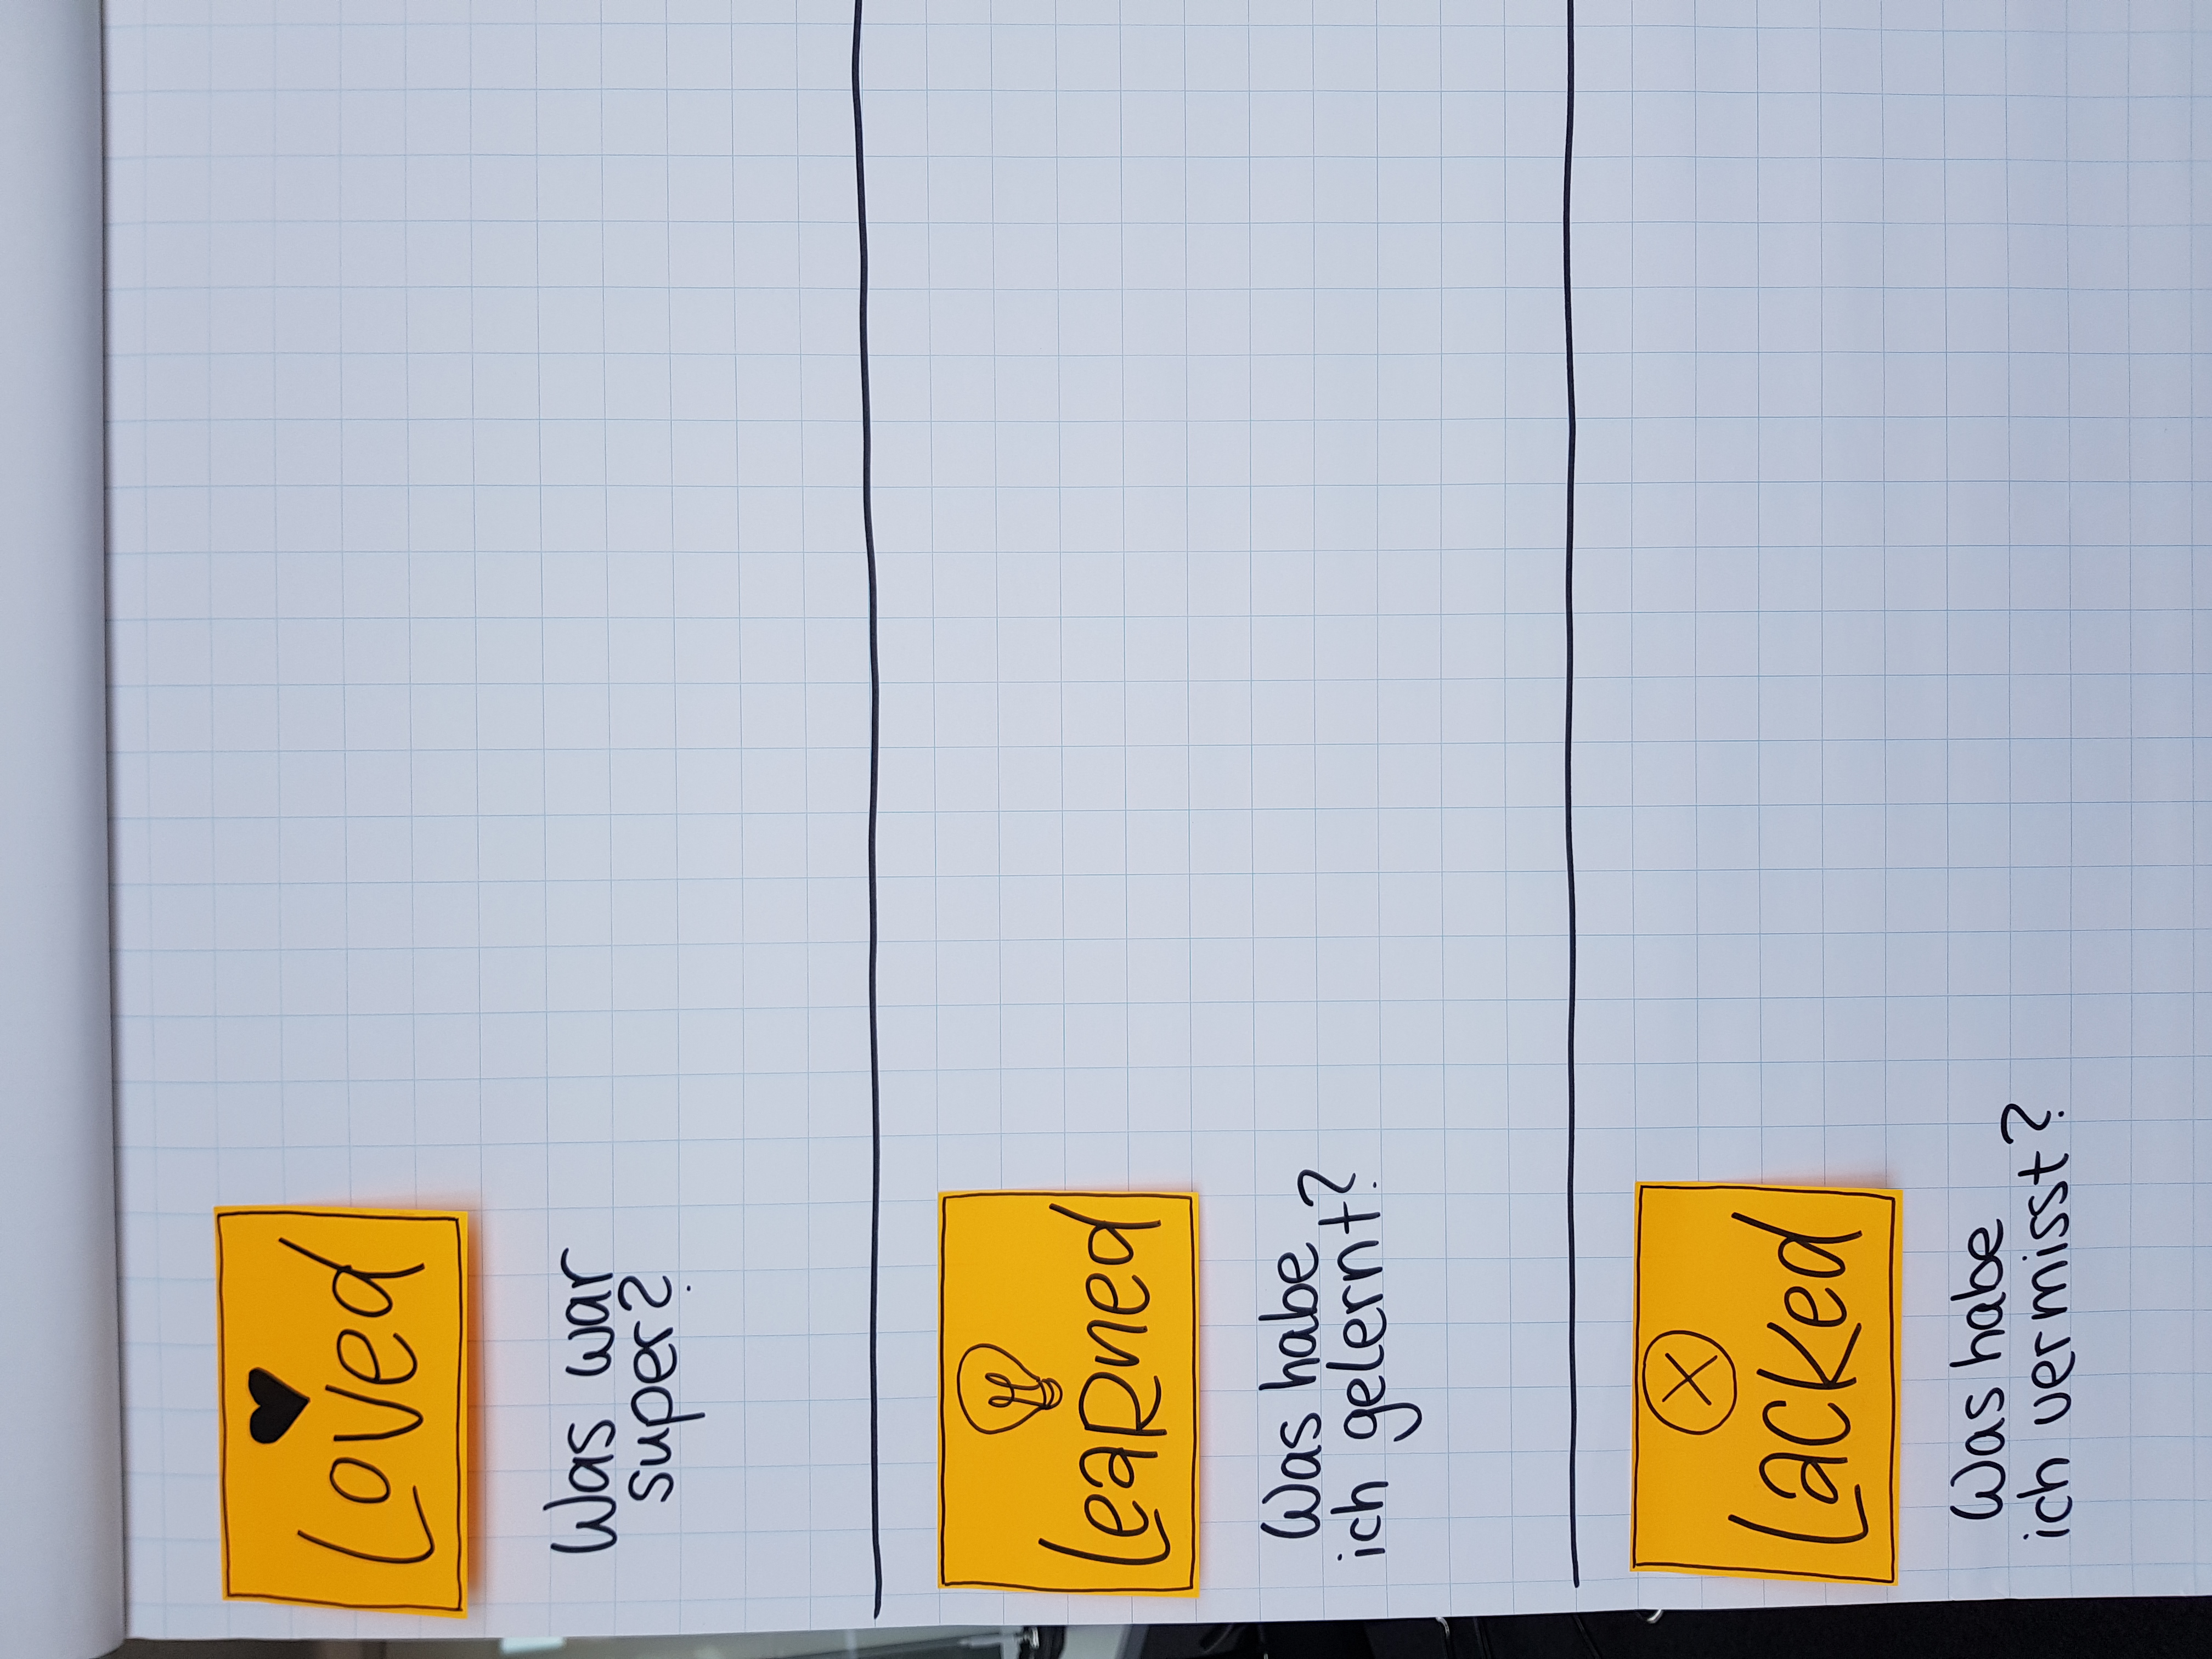 Loved
Was war
super?
Learned
Was habe
ich gelernt?
Lacked
Was habe
ich vermisst?